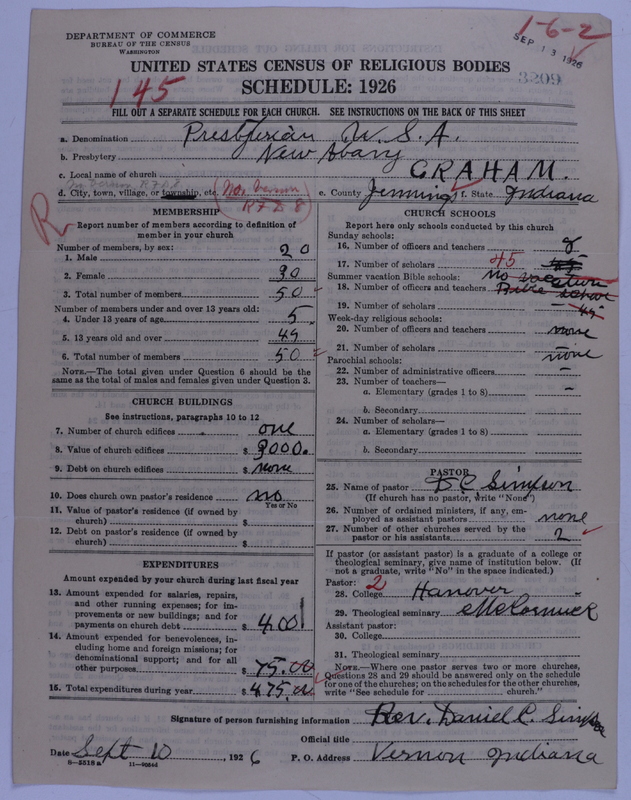 DEPARTMENT OF COMMERCE
BUREAU OF THE CENSUS
WASHINGTON
1-6-2
SEP 13 1926
3209
UNITED STATES CENSUS OF RELIGIOUS BODIES
SCHEDULE: 1926
145
FILL OUT A SEPARATE SCHEDULE FOR EACH CHURCH. SEE INSTRUCTIONS ON THE BACK OF THIS SHEET
a. Denomination Presbyterian U.S.A.
b. Presbytery New Albany
c. Local name of church GRAHAM.
d. City, town, village, or township, etc. No. Vernon RFD 8 e. County Jennings f. State Indiana
R
MEMBERSHIP
Report number of members according to definition of member in your church
Number of members, by sex:
1. Male 20
2. Female 30
3. Total number of members 50
Number of members under and over 13 years old:
4. Under 13 years of age 5
5. 13 years old and over 45
6. Total number of members 50
NOTE.—The total given under Question 6 should be the same as the total of males and females given under Question 3.
CHURCH BUILDINGS
See instructions, paragraphs 10 to 12
7. Number of church edifices one
8. Value of church edifices $ 3000.
9. Debt on church edifices $ none
10. Does church own pastor's residence no
Yes or No
11. Value of pastor's residence (if owned by church) $
12. Debt on pastor's residence (if owned by church) $
EXPENDITURES
Amount expended by your church during last fiscal year
13. Amount expended for salaries, repairs, and other running expenses; for improvements or new buildings; and for payments on church debt $ 400
14. Amount expended for benevolences, including home and foreign missions; for denominational support; and for all other purposes $ 75.00
15. Total expenditures during year $ 475.00
CHURCH SCHOOLS
Report here only schools conducted by this church
Sunday schools:
16. Number of officers and teachers 8
17. Number of scholars 45
Summer vacation Bible schools: no vacation
18. Number of officers and teachers Bible school
19. Number of scholars 45
Week-day religious schools:
20. Number of officers and teachers none
21. Number of scholars none
Parochial schools:
22. Number of administrative officers –
23. Number of teachers—
a. Elementary (grades 1 to 8) –
b. Secondary
24. Number of scholars—
a. Elementary (grades 1 to 8)
b. Secondary
PASTOR
25. Name of pastor D C Simpson
(If church has no pastor, write "None")
26. Number of ordained ministers, if any, employed as assistant pastors none
27. Number of other churches served by the pastor or his assistants 2
If pastor (or assistant pastor) is a graduate of a college or theological seminary, give name of institution below. (If not a graduate, write "No" in the space indicated.)
Pastor: 2
28. College Hanover
29. Theological seminary McCormick
Assistant pastor:
30. College
31. Theological seminary
NOTE.—Where one pastor serves two or more churches, Questions 28 and 29 should be answered only on the schedule for one of the churches; on the schedules for the other churches, write "See schedule for church."
Signature of person furnishing information Rev. Daniel C. Simpson
Official title
Date Sept 10, 1926 P. O. Address Vernon Indiana
8—5518 a